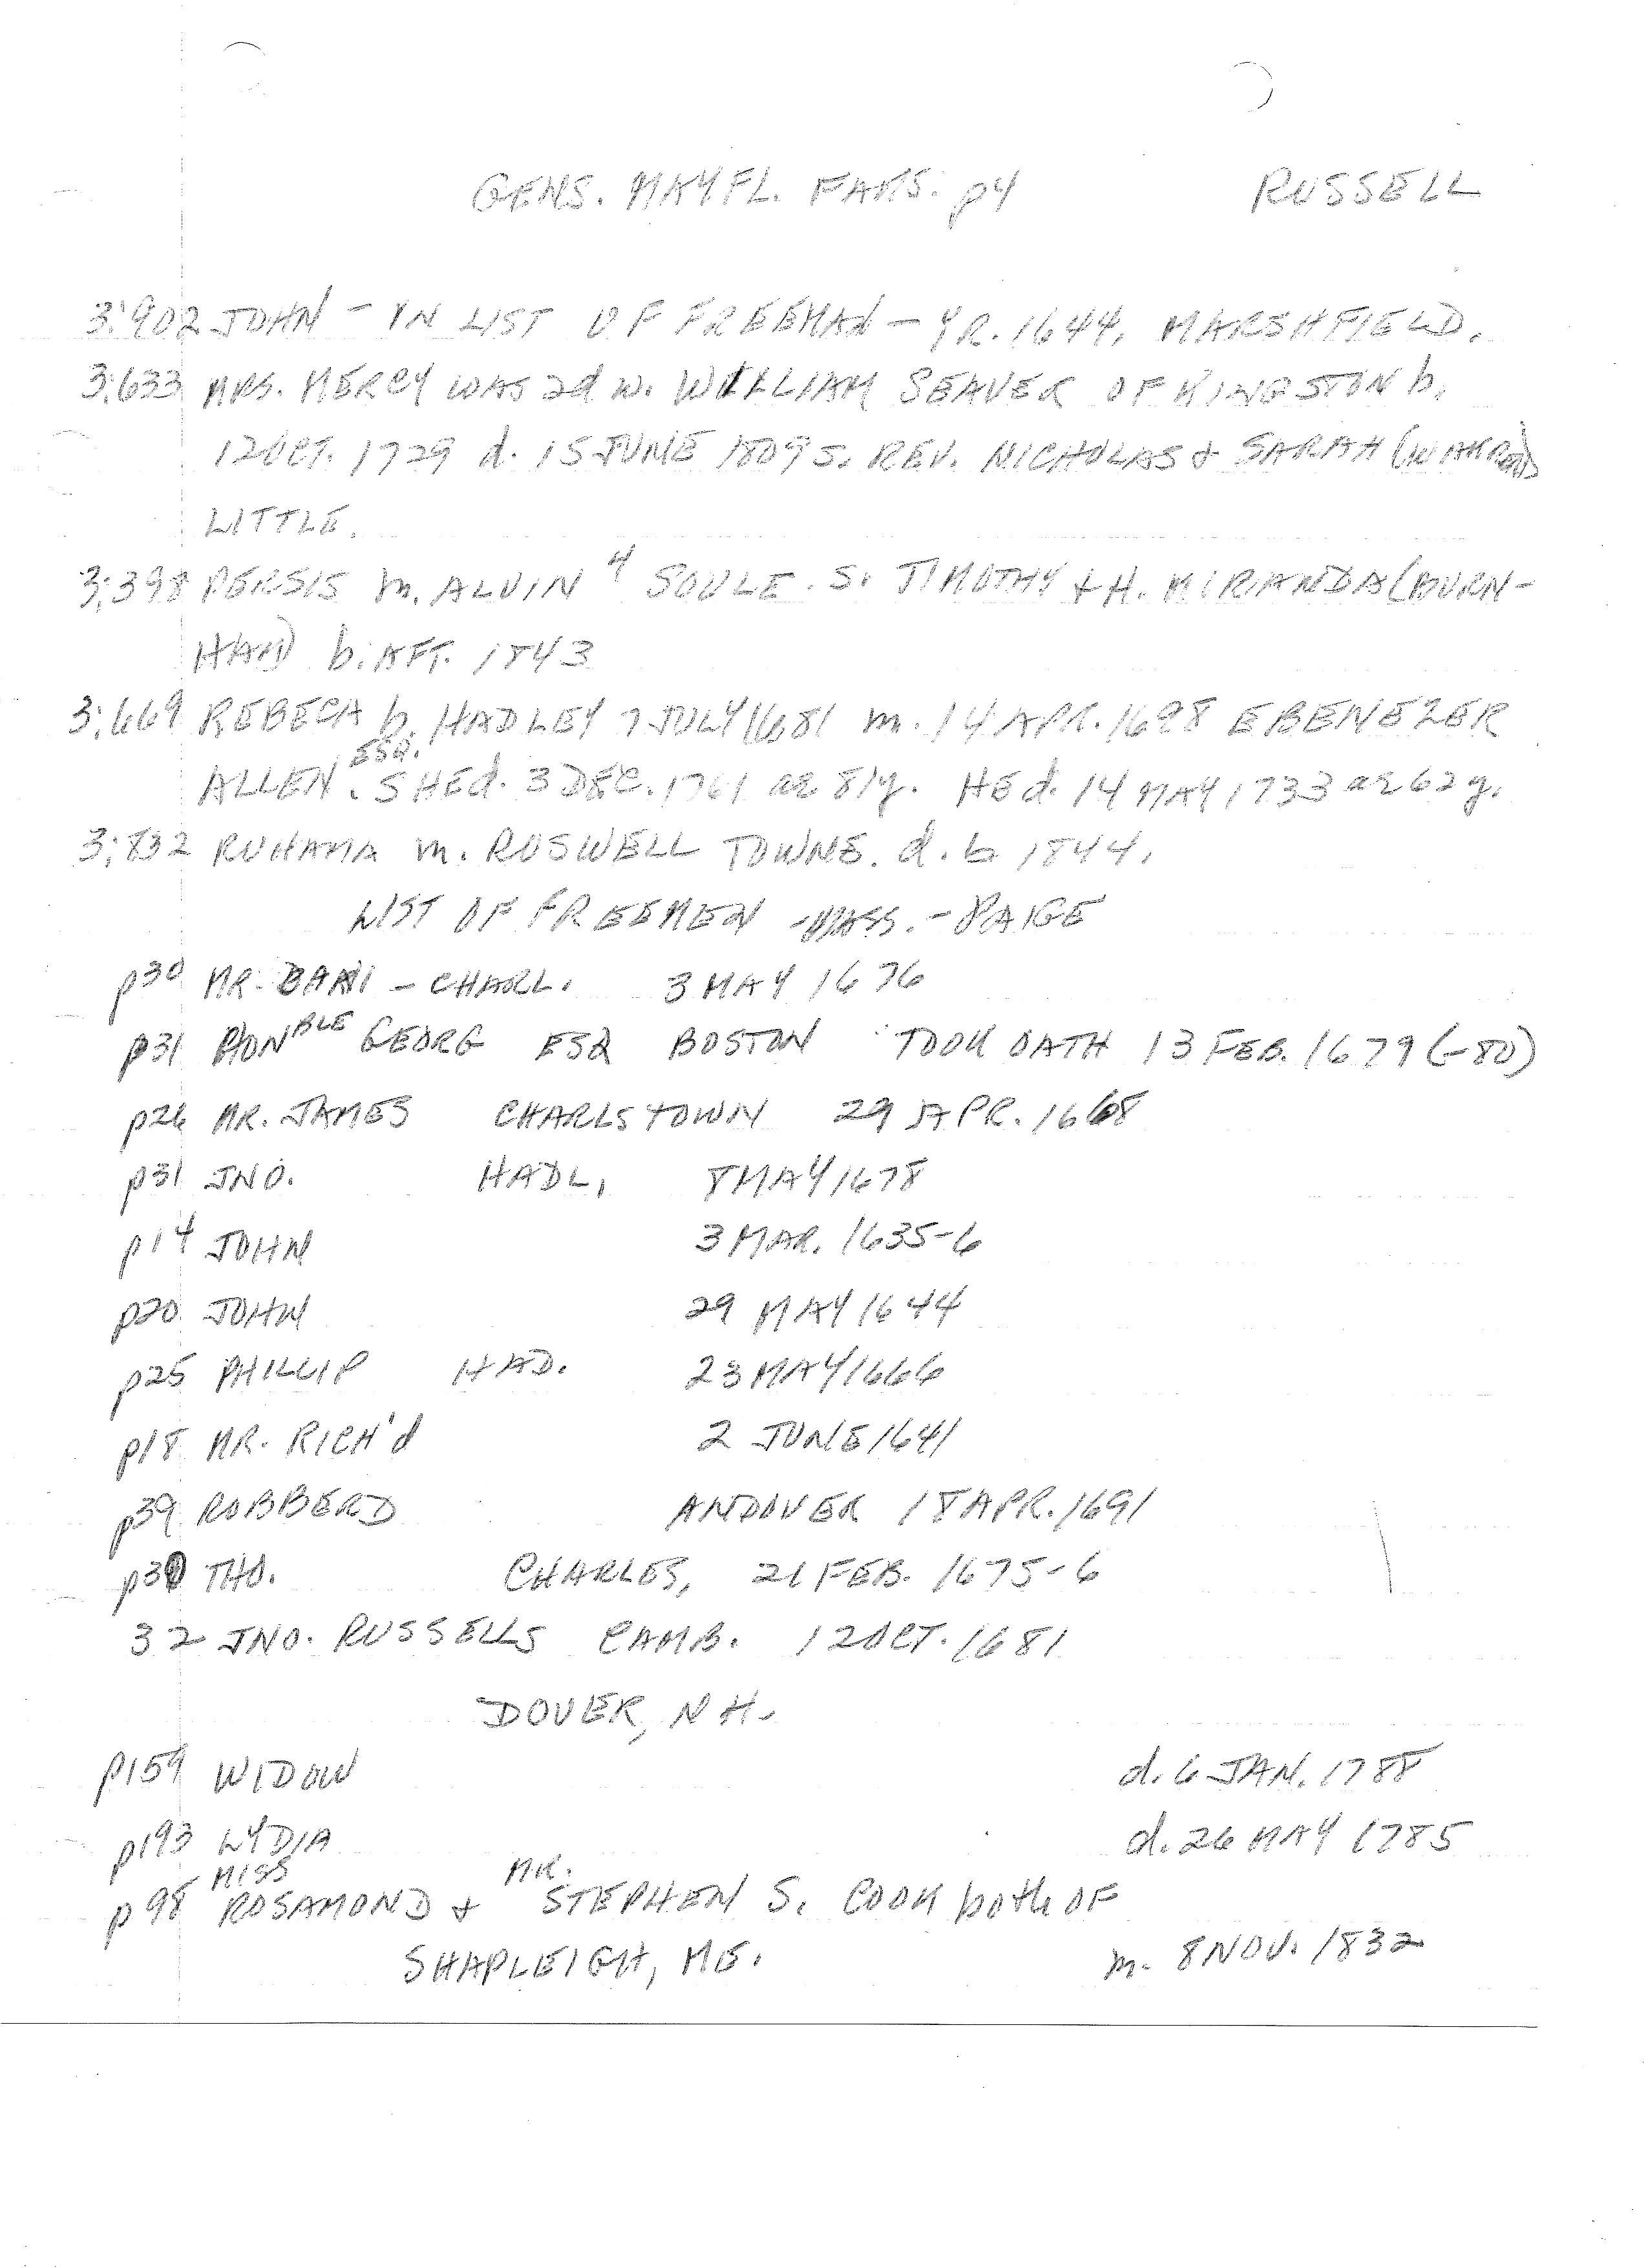 GENS. MAYFL. FAMS. p4 RUSSELL
3:902 JOHN - IN LIST OF FREEMAN - YR. 1644, MARSHFIELD.
3:633 MRS. MERCY WAS 2d w. WILLIAM SEAVER OF KINGSTON b.
12 OCT. 1729 d. 15 JUNE 1809 s. REV. NICHOLAS & SARAH
LITTLE.
3:398 PERSIS m. ALVIN 4 SOULE s. TIMOTHY & H. MIRIANDA (BURN-
HAM) b. AFT. 1843
3:669 REBECA b. HADLEY 7 JULY 1681 m. 14 APR. 1698 EBENEZER
ALLEN ESQ. SHE d. 3 DEC. 1761 ae 81y. HE d. 14 MAY 1733 ae 62y.
3:832 RUHAMA m. ROSWELL TOWNE. d. b 1844.
LIST OF FREEMEN - MASS. - PAIGE
p30 MR. - CHARL. 3 MAY 1676
p31 HONBLE GEORG ESQ BOSTON TOOK OATH 13 FEB. 1679 (-80)
p26 MR. JAMES CHARLSTOWN 29 APR. 1668
p31 JNO. HADL, 8 MAY 1678
p14 JOHN 3 MAR. 1635-6
p20 JOHN 29 MAY 1644
p25 PHILLIP HAD. 23 MAY 1666
p18 MR. RICH'd 2 JUNE 1641
p39 ROBBERD ANDOVER 18 APR. 1691
p30 THO. CHARLES, 21 FEB. 1675-6
32 JNO. RUSSELLS CAMB. 12 OCT. 1681
DOVER, NH.
p159 WIDOW d. 6 JAN. 1788
p193 LYDIA d. 26 MAY 1785
p98 MISS ROSAMOND & MR. STEPHEN S. COOK both OF
SHAPLEIGH, ME. m. 8 NOV. 1832